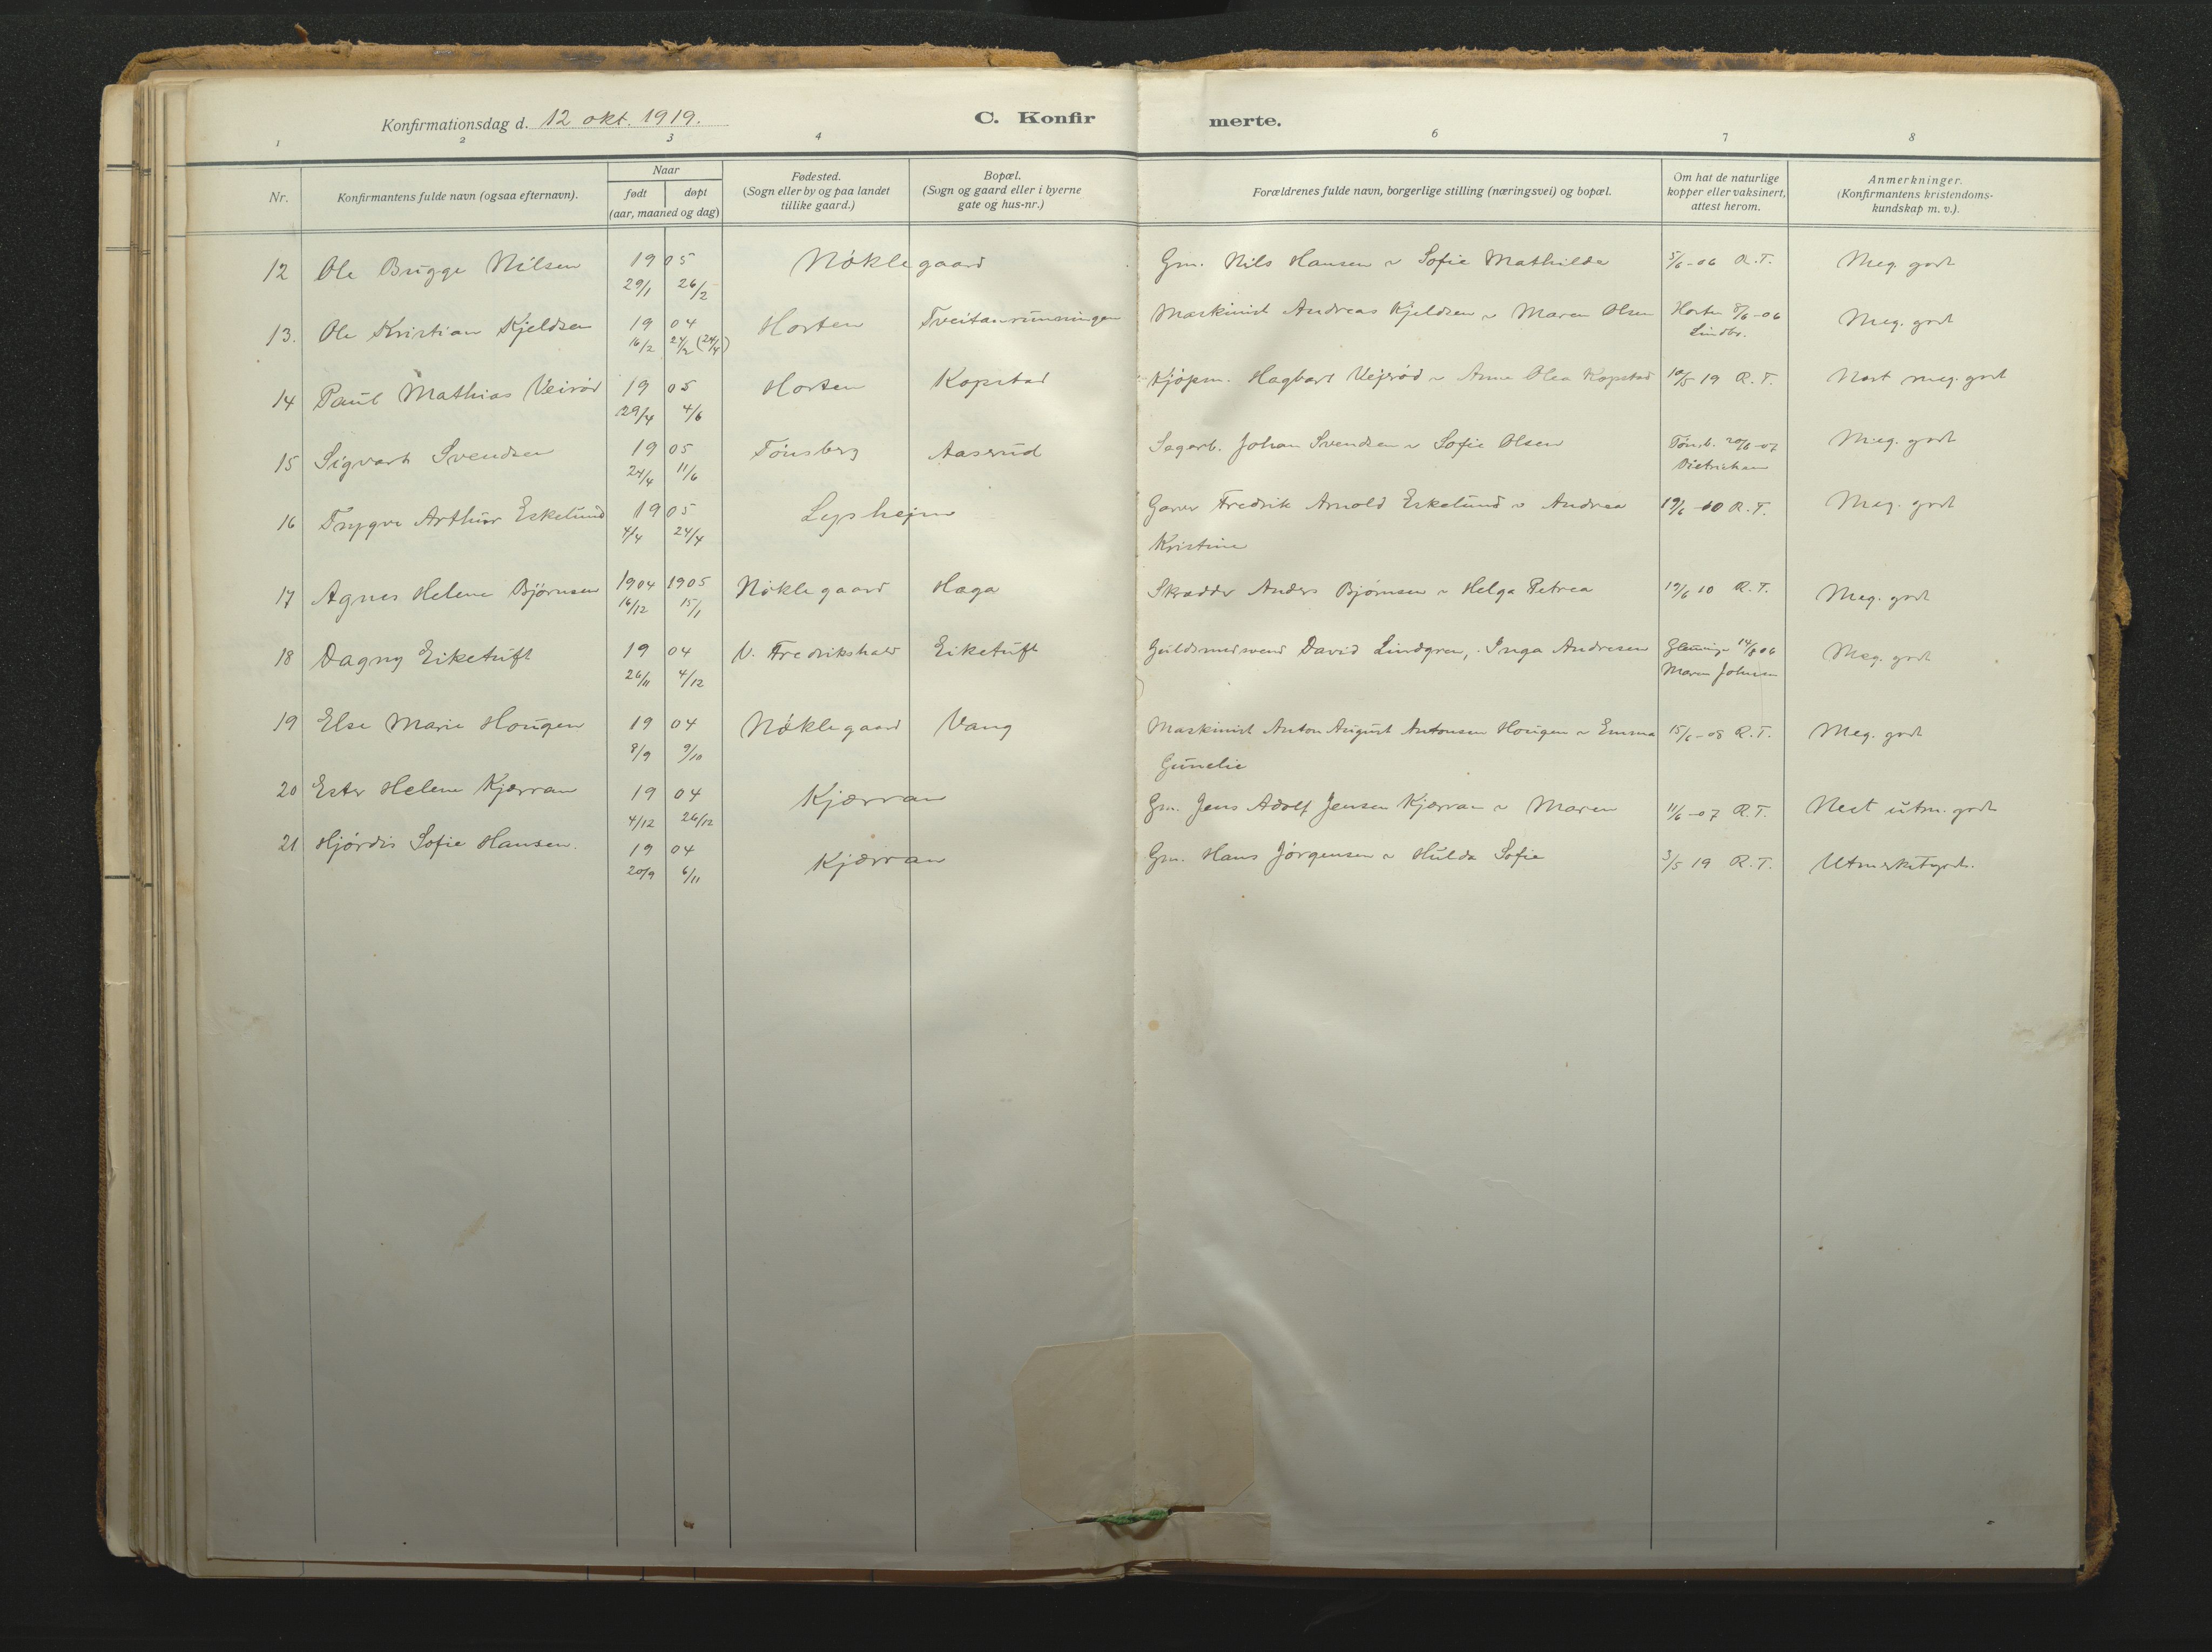 Konfirmationsdag d. 12 okt. 1919.
C. Konfirmerte.
1 2 3 4 6 7 8
Nr.
Konfirmantens fulde navn (ogsaa efternavn).
Naar
født døpt
(aar, maaned og dag)
Fødested.
(Sogn eller by og paa landet
tillike gaard.)
Bopæl.
(Sogn og gaard eller i byerne
gate og hus-nr.)
Forældrenes fulde navn, borgerlige stilling (næringsvei) og bopæl.
Om hat de naturlige
kopper eller vaksinert,
attest herom.
Anmerkninger.
(Konfirmantens kristendoms-
kundskap m. v.).
12 Ole Brugge Nilsen 1905 Nøklegaard Gm. Nils Hansen o Sofie Mathilde 5/6-06 R.T. Meg. godt
29/1 26/2
13. Ole Kristian Kjeldsen 1904 Horten Tveitanrunningen Maskinist Andreas Kjeldsen o Maren Olsen Horten 8/6-06 Meg. godt
16/2 24/2 (24/4) Lindbr.
14 Paul Mathias Veirød 1905 Horten Kopstad Kjøpm. Hagbart Vejrød o Anne Olea Kopstad 10/5 19 R.T. Næst meg. godt
29/4 4/6
15 Sigvart Svendsen 1905 Tønsberg Aaserud Sagarb. Johan Svendsen o Sofie Olsen Tønsb. 20/6-07 Meg. godt
24/4 11/6 Dietrichsen
16 Trygve Arthur Eskelund 1905 Lysheim Garver Fredrik Arnold Eskelund o Andrea 19/6-10 R.T. Meg. godt
4/4 24/4 Kristine
17 Agnes Helene Bjørnsen 1904 1905 Nøklegaard Haga Skrædder Anders Bjørnsen o Helga Petrea 19/6 10 R.T. Meg. godt
16/12 15/1
18 Dagny Eiketuft 1904 V. Fredrikshald Eiketuft Guldsmedsvend David Lindgren, Inga Andresen 14/8 06 Meg. godt
26/11 4/12 Maren Johnsen
19 Else Marie Hougen 1904 Nøklegaard Vang Maskinist Anton August Antonsen Hougen o Emma 15/6-08 R.T. Meg. godt
8/9 9/10 Gunelie
20 Ester Helene Kjærran 1904 Kjærran Gm. Jens Adolf Jensen Kjærran o Maren 11/6-07 R.T. Nest utm. godt
4/12 26/12
21 Hjørdis Sofie Hansen. 1904 Kjærran Gm. Hans Jørgensen o Hulda Sofie 3/5 19 R.T. Utmerket godt.
20/9 6/11